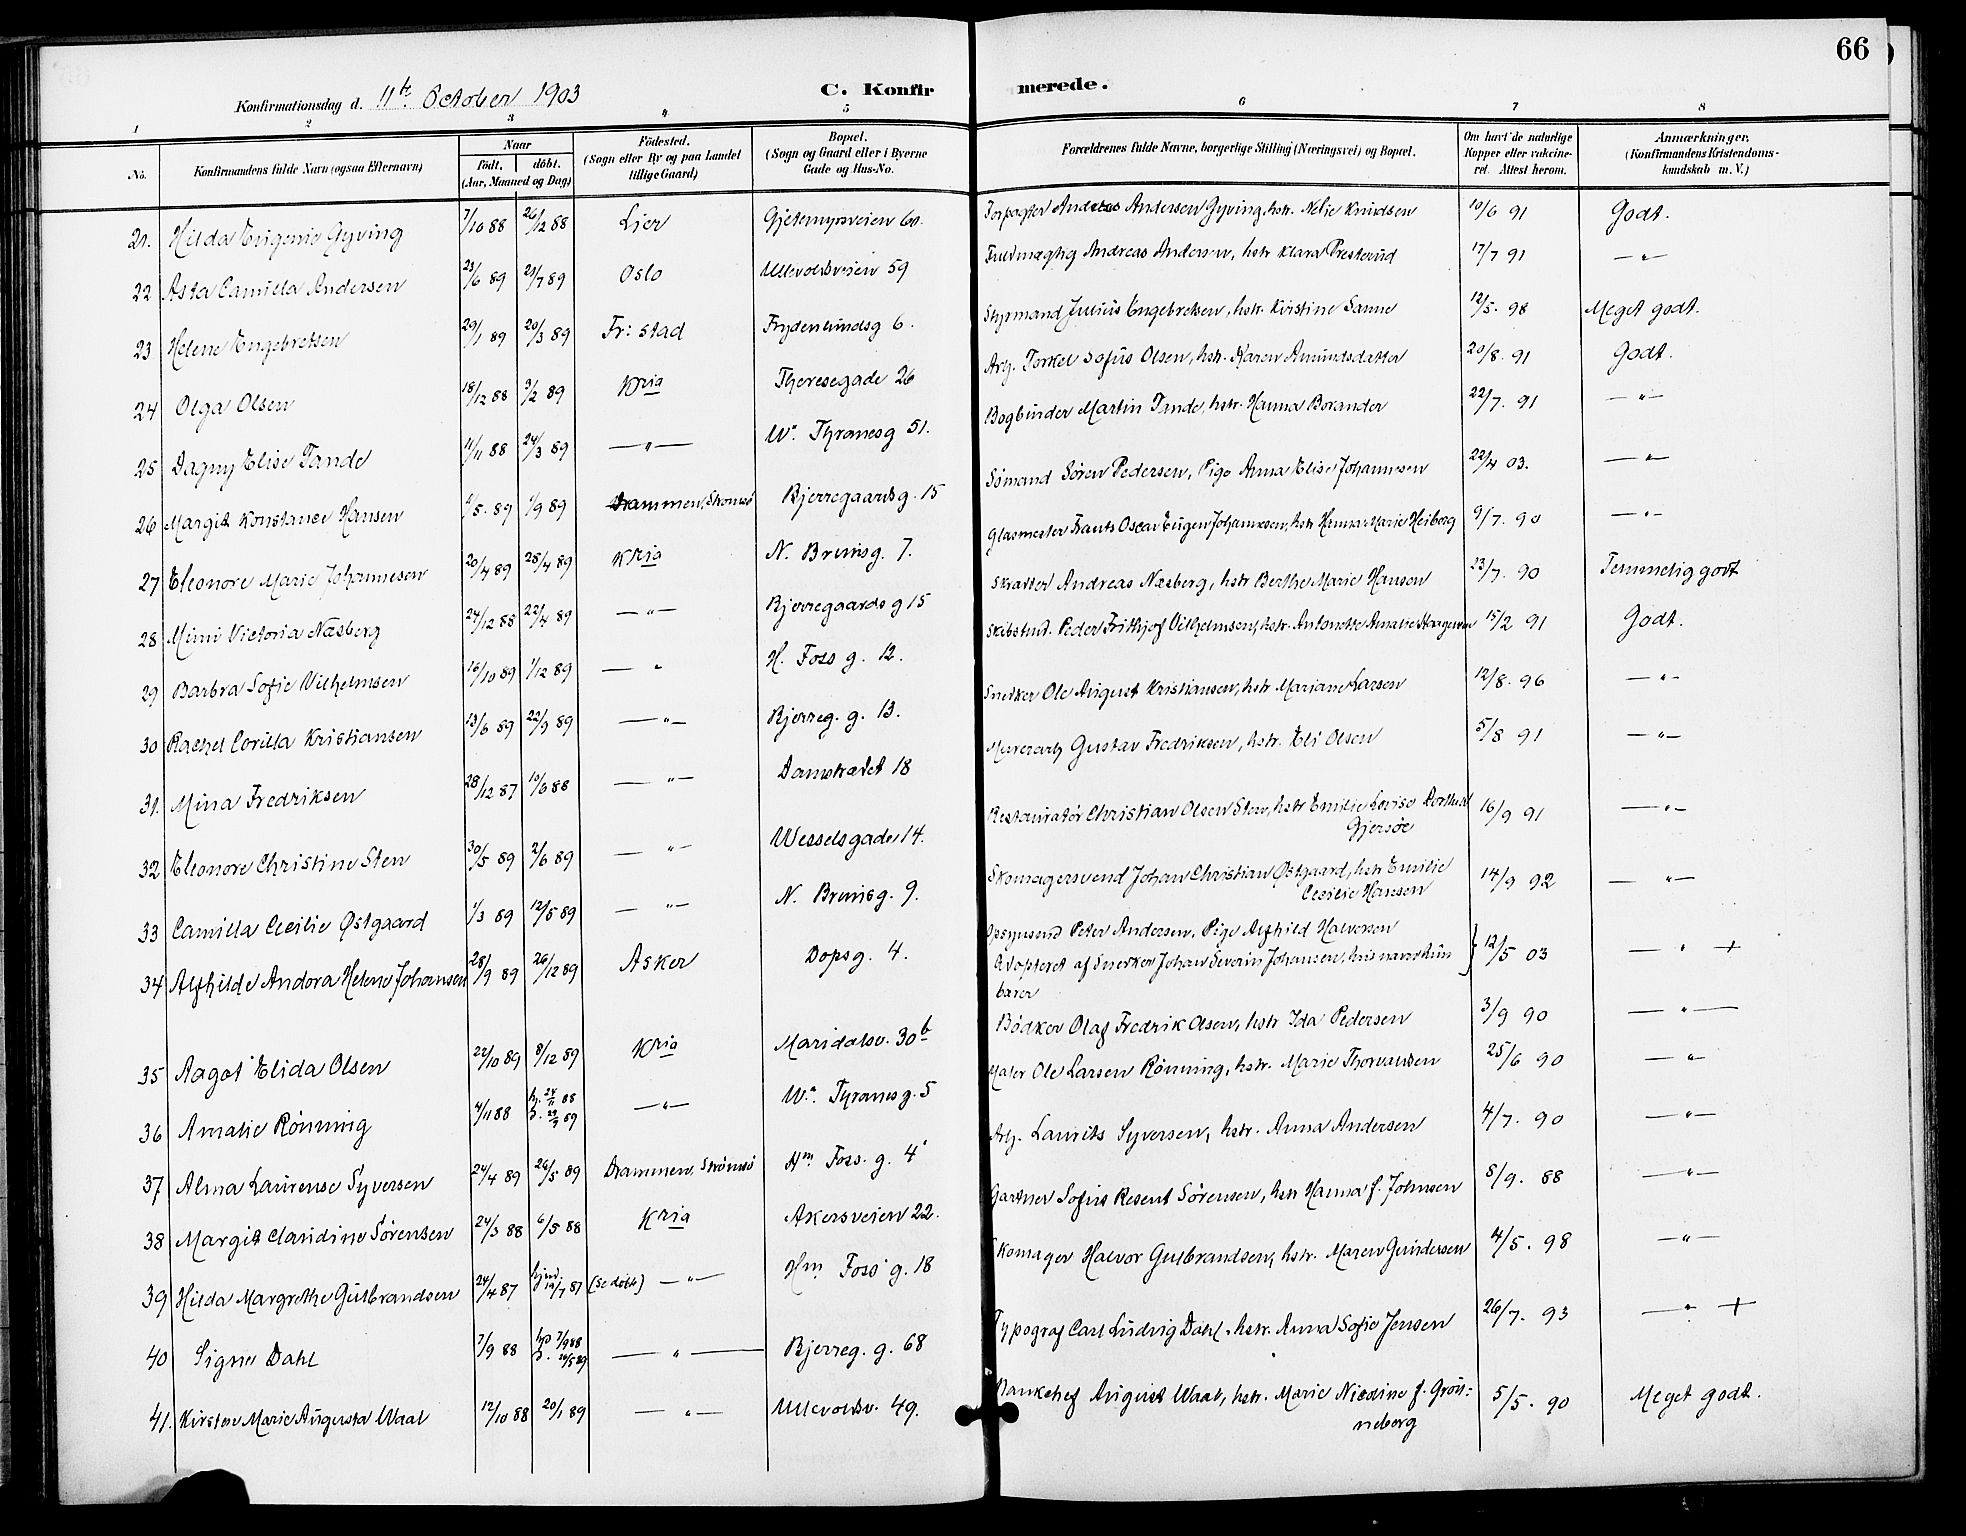 66
Konfirmationsdag d. 11te October 1903
C. Konfirmerede.
1 2 3 4 5 6 7 8
No. Konfirmandens fulde Navn (ogsaa Efternavn) Naar født. døbt. (Aar, Maaned og Dag) Fødested. (Sogn eller By og paa Landet tillige Gaard) Bopæl. (Sogn og Gaard eller i Byerne Gade og Hus-No. Forældrenes fulde Navne, borgerlige Stilling (Næringsvei) og Bopæl. Om havt de naturlige Kopper eller vakcineret. Attest herom. Anmærkninger. (Konfirmandens Kristendomskundskab m. V.)
21. Hilda Eugenie Gyving 7/10 88 26/12 88 Lier Gjetemyrsveien 60. Forpagter Andreas Andersen Gyving, hstr. Nelie Knudsen 10/6 91 Godt.
22 Asta Camilla Andersen 23/6 89 29/7 89 Oslo Ullevoldsveien 59 Fuldmægtig Andreas Andersen, hstr Klara Presterud 17/7 91 — " —
23 Helene Engebretsen 29/1 89 20/3 89 Fr:stad Frydenlundsg 6. Styrmand Julius Engebretsen, hstr. Kristine Sanne 12/5. 98 Meget godt.
24 Olga Olsen 18/12 88 3/2 89 Kria Theresegade 26 Arb. Torkel Sofus Olsen, hstr. Karen Amundsdatter 20/8. 91 Godt.
25 Dagny Elise Tande 11/11 88 24/3 89 — " — Wm. Thranesg 51. Bogbinder Martin Tande, hstr. Hanna Borander 22/7. 91 — " —
26 Margit Konstance Hansen 1/5. 89 1/9 89 Drammen, Strømsø Bjerregaardsg. 15 Sømand Søren Pedersen, Pige Anna Elise Johannesen 22/4 03. — " —
27 Eleonore Marie Johannesen 20/4 89 28/4 89 Kria N. Brunsg. 7. Glasmester Frants Oscar Eugen Johannesen, hstr Hanna Marie Heiborg 9/7. 90 — " —
28 Mimi Victoria Næsberg 24/12 88 22/4 89 — " — Bjerregaards g 15 Skrædder Andreas Næsberg, hstr Berthe Marie Hansen 23/7. 90 Temmelig godt
29 Barbra Sofie Vilhelmsen 16/10 89 1/12 89 — " H. Foss g. 12. Skibstmd. Peder Frithjof Vilhelmsen, hstr. Antonette Amalie 15/2 91 Godt.
30 Rachel Corilla Kristiansen 13/6 89 22/9 89 — " — Bjerreg. g. 13. Snedker Ole August Kristiansen, hstr Mariane Larsen 12/8. 96 — " —
31. Mina Fredriksen 28/12 87 10/6 88 — " — Damstrædet 18 Murerarb Gustav Fredriksen, hstr. Eli Olsen 5/8 91 — " —
32 Eleonore Christine Sten 30/5 89 2/6 89 — " — Wesselsgade 14. Restauratør Christian Olsen Sten, hstr Emilie Lovise Dorthea
Gjersøe 16/9 91 — " —
33 Camilla Cecilie Østgaard 1/3 89 12/5 89 — " — N. Brunsg. 9. Skomagersvend Johan Christian Østgaard, hstr Emilie
Cecilie Hansen 14/9 92 — " —
34 Alfhilde Andora Helene Johansen 28/9 89 26/12 89 Asker Dopsg. 4. Opsynsmd Peter Andersen, Pige Alfhild Halvorsen
Adopteret af Snedker Johan Severin Johansen, his navn hun
bærer } 12/5 03 — " — +
35 Aagot Elida Olsen 22/10 89 8/12 89 Kria Maridalsv. 30b Bødker Olaf Fredrik Olsen, hstr Ida Pedersen 3/9 90 — " —
36 Amalie Rønning 4/11 88 hj. 24/11 88
b. 29/9 89 — " — Wm. Thranesg. 5 Maler Ole Larsen Rønning, hstr. Marie Thorvaldsen 25/6 90 — " —
37 Alma Laurense Syversen 24/4 89 26/5 89 Drammen, Strømsø Hm Foss. g. 4 Arb. Laurits Syversen, hstr. Anna Andersen 4/7. 90 — " —
38 Margit Claudine Sørensen 24/3 88 6/5 88 Kria Akersveien 22. Gartner Sofus Resent Sørensen, hstr Hanna f. Johnsen 5/9. 88 — " —
39 Hilda Margrethe Gulbrandsen 24/4 87 hjmd 10/7 87 (se døbt) — " — Hm Foss g. 18 Skomager Halvor Gulbrandsen, hstr. Maren Gundersen 4/5. 98 — " —
40 Signe Dahl 7/9 88 hjd 7/9 88
b. 26/5 89 — " — Bjerreg. g. 68 Typograf Carl Ludvig Dahl, hstr. Anna Sofie Jensen 26/7. 93 — " — +
41. Kirstine Marie Augusta Waal 12/10 88 20/1 89 — " — Ullevoldsv. 49. Bankchef August Waal, hstr. Marie Nicoline f. Grøn=
neberg 5/5. 90 Meget godt.